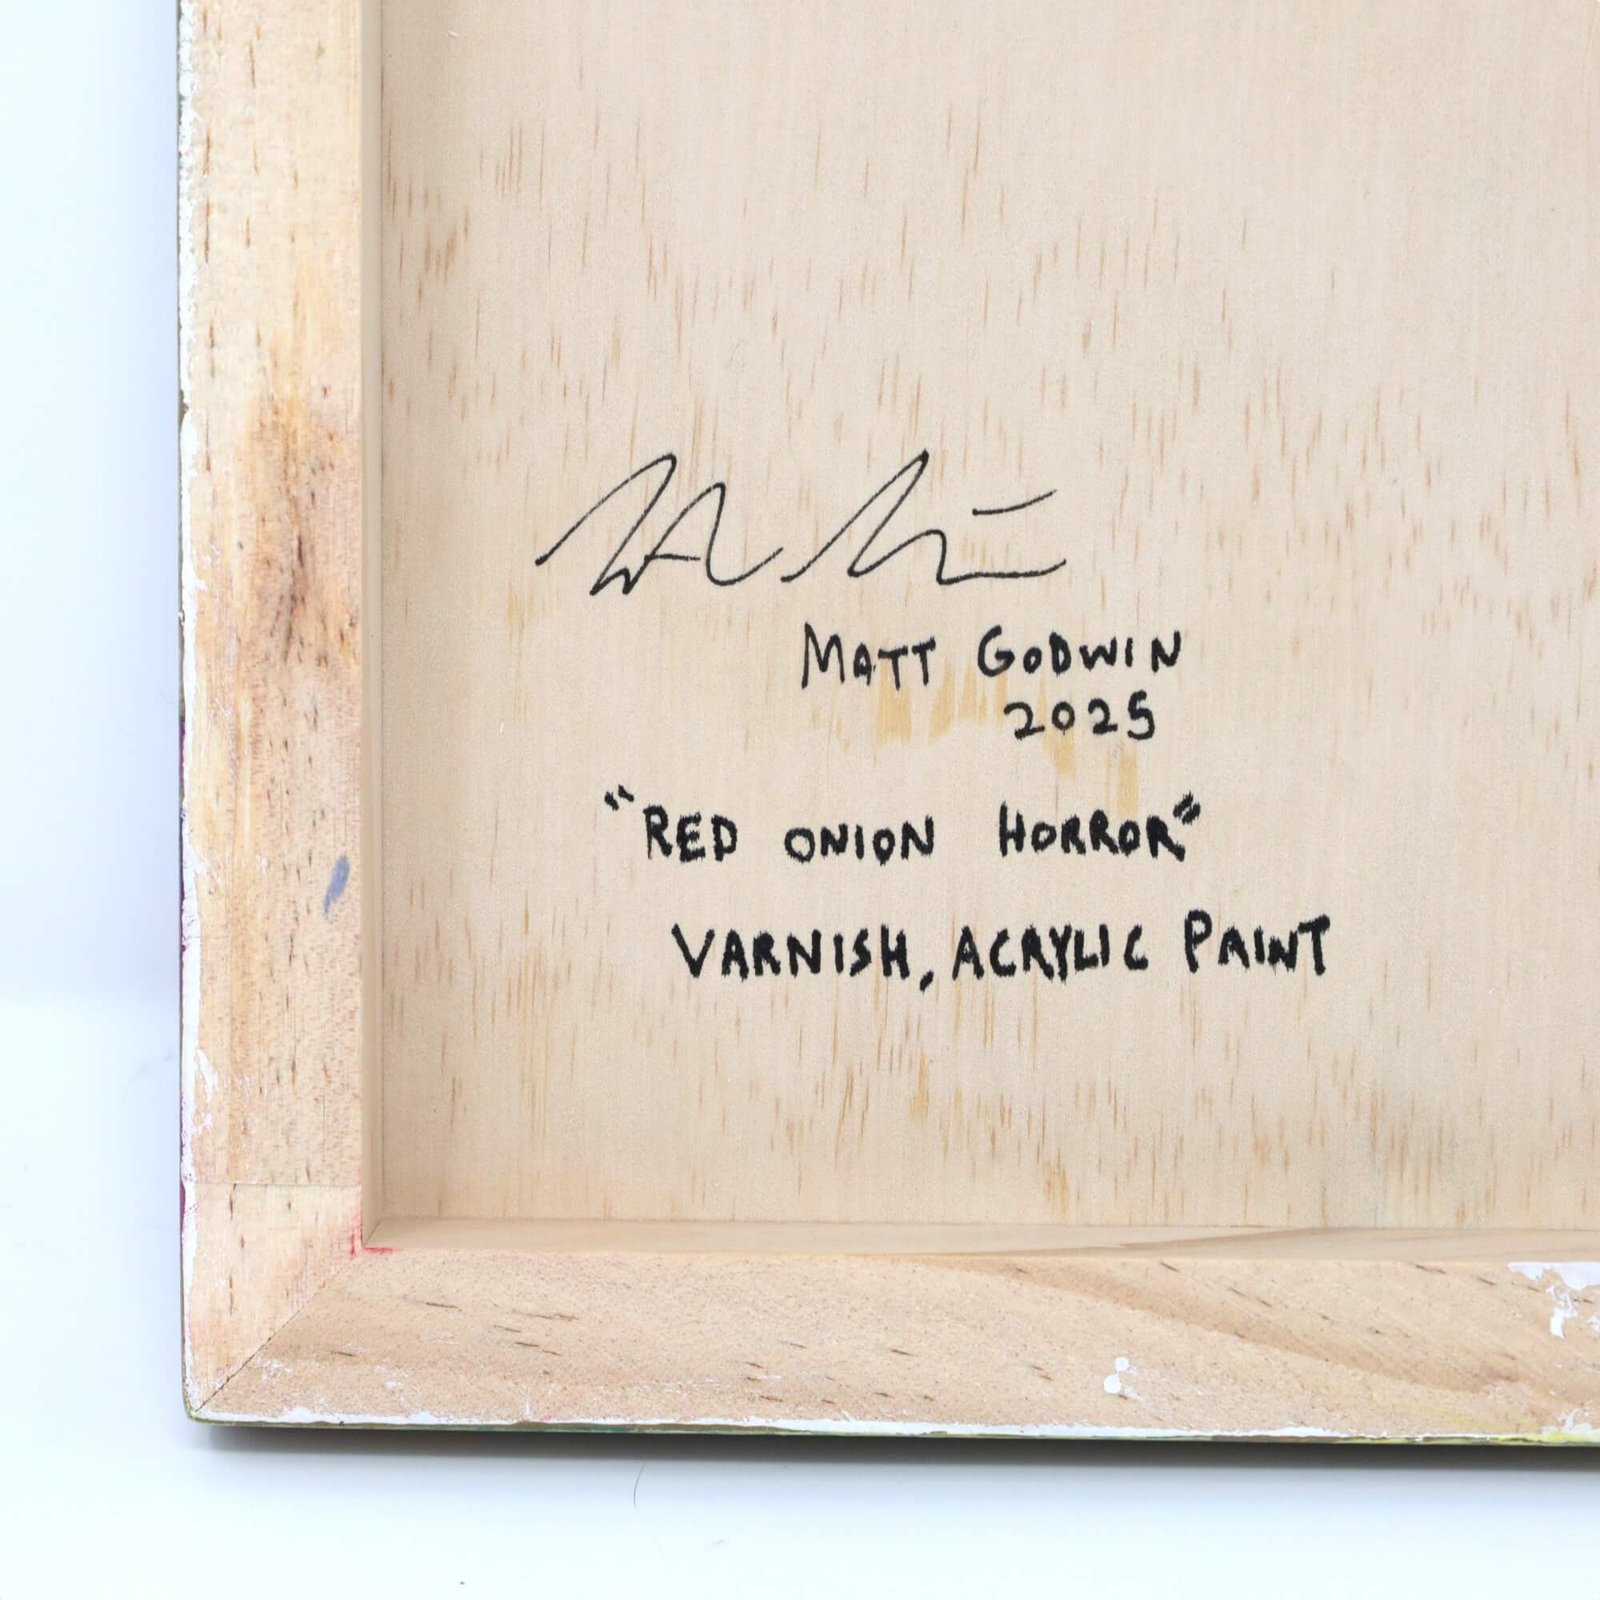 MATT GODWIN
2025
"RED ONION HORROR"
VARNISH, ACRYLIC PAINT